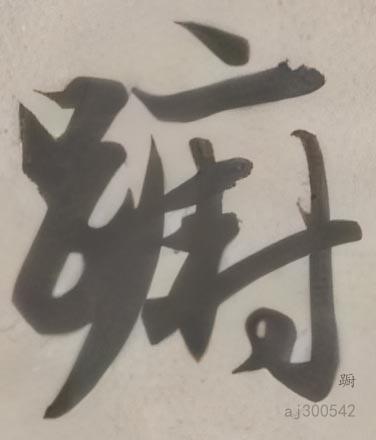 躕
蹰
aj300542